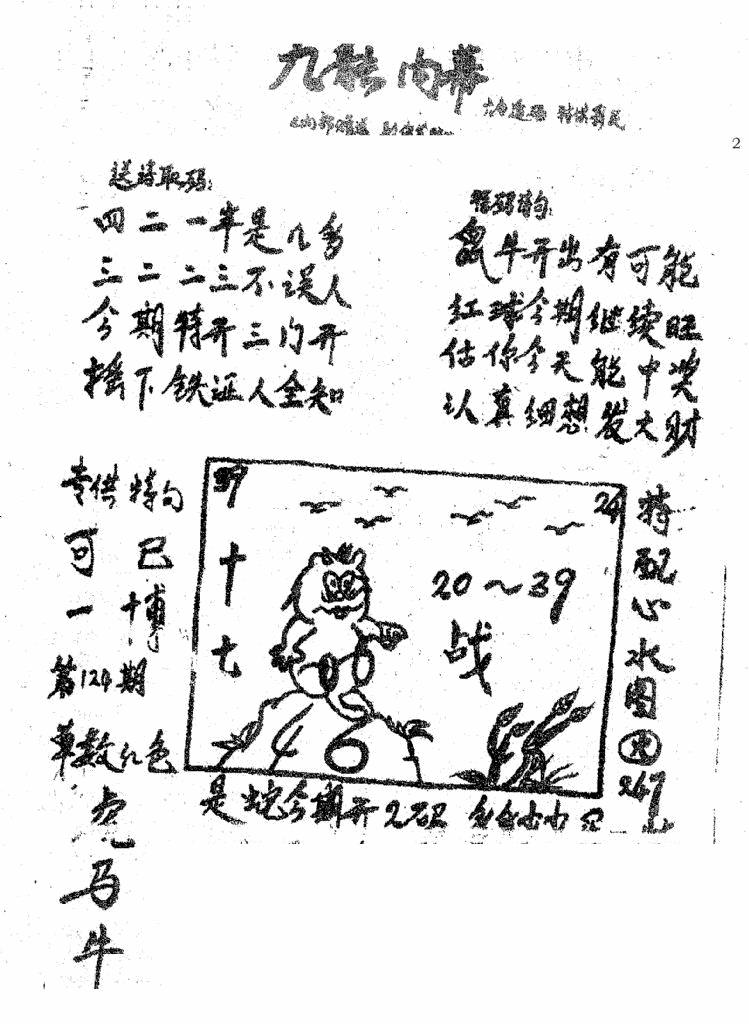 九龍内幕
2
送诗取码:
四二一半是几多
三二二三不误人
今期特开三门开
摇下铁证人全知
猛码诗句:
鼠牛开出有可能
红球今期继续旺
估你今天能中奖
认真细想发大财
专供特句
可已
一博
第124期
单数红色
虎
马
牛
39
24
十七
20～39
战
46
特配心水图
247
是蛇今期开2